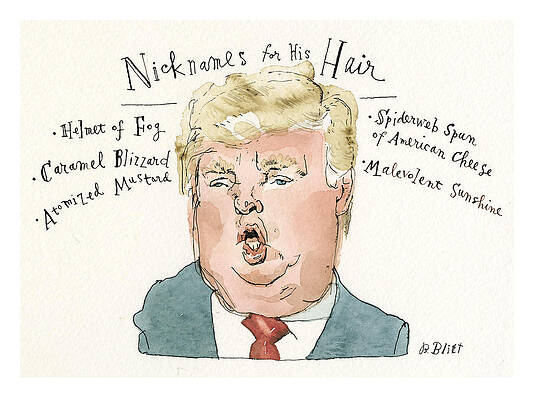 Nicknames for His Hair
• Helmet of Fog
• Caramel Blizzard
• Atomized Mustard
• Spiderweb Spun
of American Cheese
• Malevolent Sunshine
R. Blitt